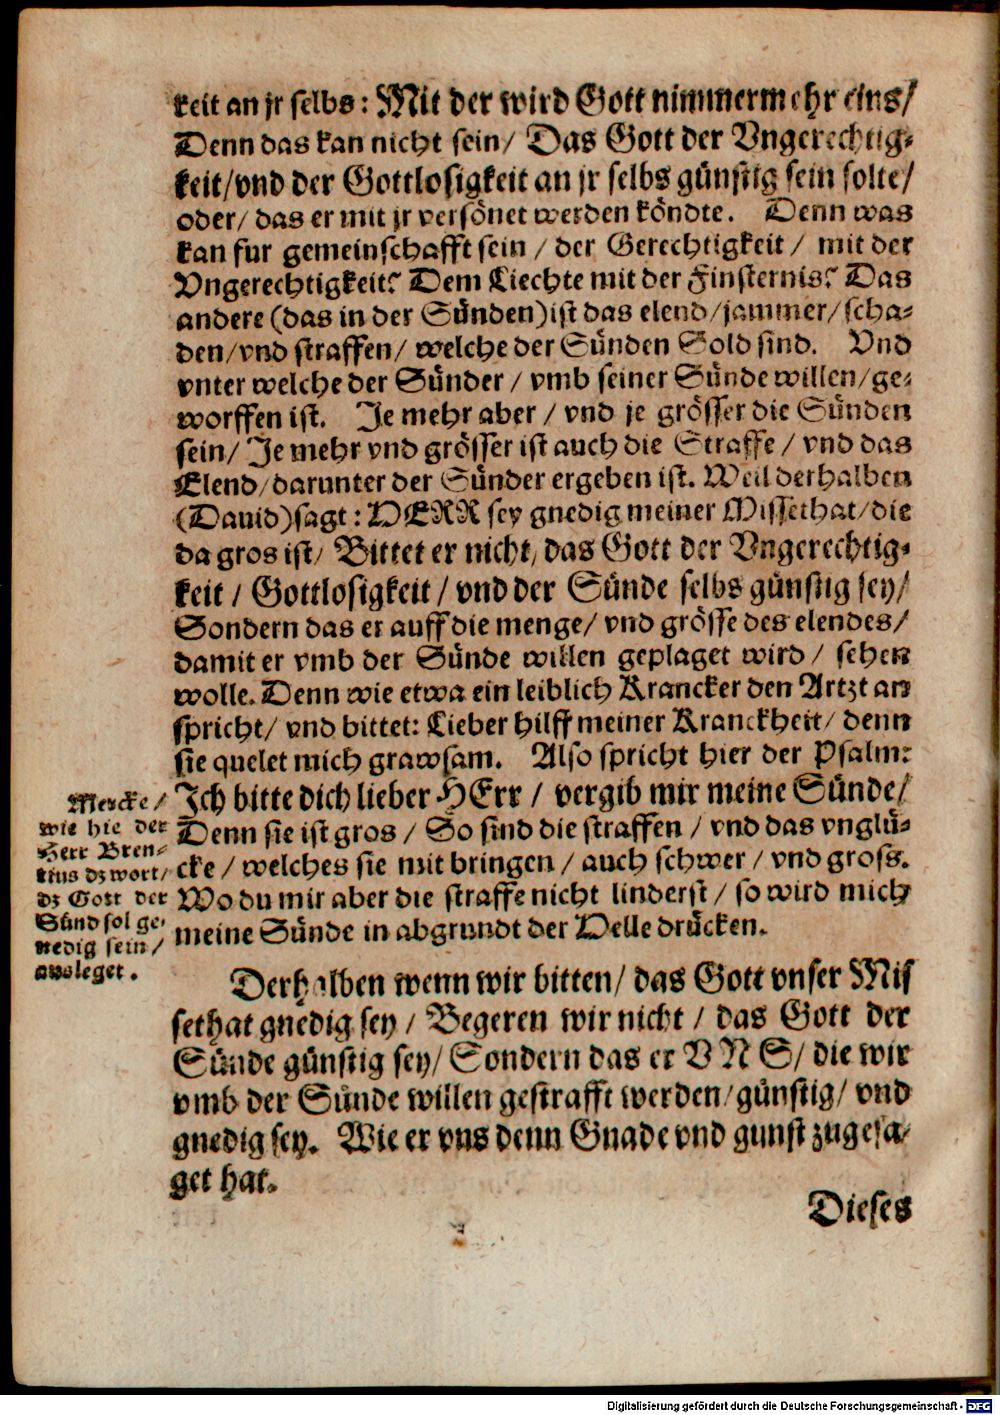 keit an jr selbs: Mit der wird Gott nimmermehr eins/
Denn das kan nicht sein/ Das Gott der Vngerechtig-
keit/vnd der Gottlosigkeit an jr selbs günstig sein solte/
oder/ das er mit jr versönet werden köndte. Denn was
kan fur gemeinschafft sein / der Gerechtigkeit / mit der
Vngerechtigkeit? Dem Liechte mit der Finsternis? Das
andere (das in der Sünden) ist das elend/jammer/scha-
den/vnd straffen/ welche der Sünden Sold sind. Vnd
vnter welche der Sünder / vmb seiner Sünde willen/ge-
worffen ist. Je mehr aber / vnd je grösser die Sünden
sein/ Je mehr vnd grösser ist auch die Straffe / vnd das
Elend/darunter der Sünder ergeben ist. Weil derhalben
(Dauid) sagt: HERR sey gnedig meiner Missethat/die
da gros ist/ Bittet er nicht/ das Gott der Vngerechtig-
keit / Gottlosigkeit / vnd der Sünde selbs günstig sey/
Sondern das er auff die menge/ vnd grösse des elendes/
damit er vmb der Sünde willen geplaget wird / sehen
wolle. Denn wie etwa ein leiblich Krancker den Artzt an
spricht/ vnd bittet: Lieber hilff meiner Kranckheit/ denn
sie quelet mich grawsam. Also spricht hier der Psalm:
Ich bitte dich lieber HErr / vergib mir meine Sünde/
Denn sie ist gros / So sind die straffen / vnd das vnglü-
cke / welches sie mit bringen / auch schwer / vnd gross.
Wo du mir aber die straffe nicht linderst / so wird mich
meine Sünde in abgrundt der Helle drücken.
Mercke /
wie hie der
Herr Bren-
tius dz wort/
dz Gott der
Sünd sol ge-
nedig sein /
ausleget.
Derhalben wenn wir bitten/ das Gott vnser Mis
sethat gnedig sey / Begeren wir nicht / das Gott der
Sünde günstig sey/ Sondern das er V N S/ die wir
vmb der Sünde willen gestrafft werden/günstig/ vnd
gnedig sey. Wie er vns denn Gnade vnd gunst zugesa-
get hat.
Dieses
Digitalisierung gefördert durch die Deutsche Forschungsgemeinschaft - DFG